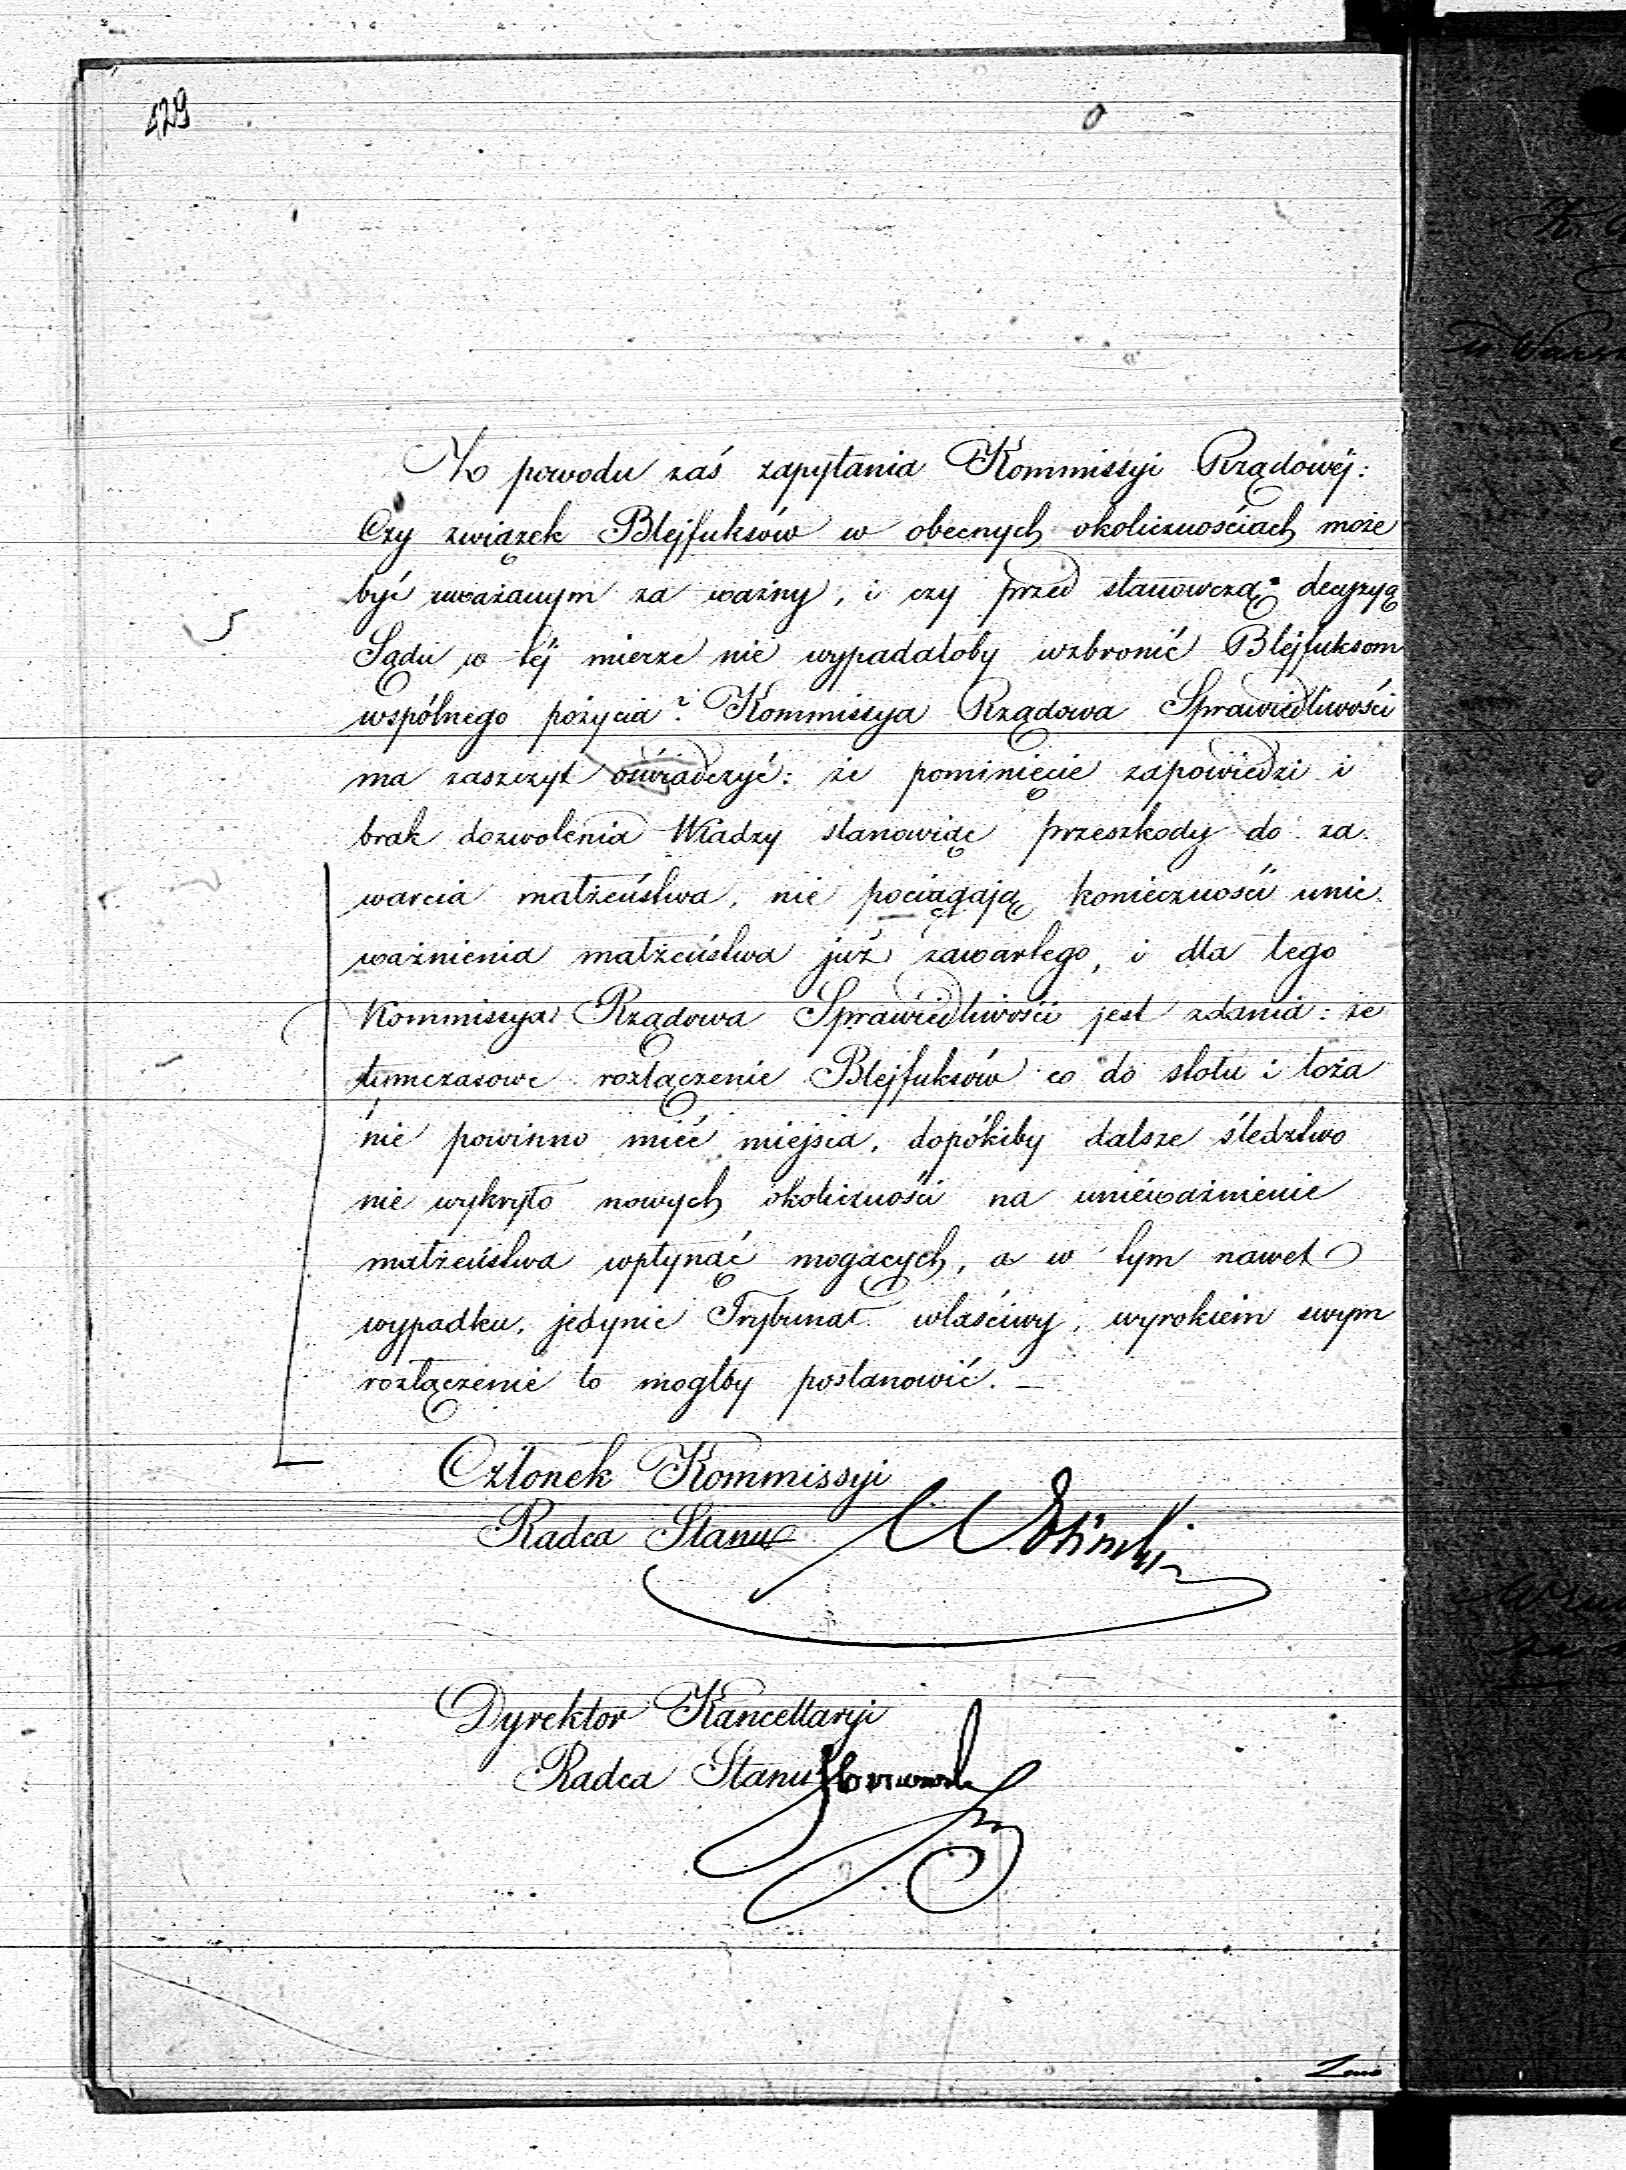 429
Z powodu zaś zapytania Kommissyi Rządowéj:
Czy związek Blejfuksów w obecnych okolicznościach może
być uważanym za ważny, i czy przed stanowczą decyzyą
Sądu w téj mierze nie wypadałoby wzbronić Blejfuksom
wspólnego pożycia? Kommissya Rządowa Sprawiedliwości
ma zaszczyt oświadczyć: że pominięcie zapowiedzi i
brak dozwolenia Władzy stanowiąc przeszkody do za
warcia małżeństwa, nie pociągają konieczności unie
ważnienia małżeństwa już zawartego, i dla tego
Kommissya Rządowa Sprawiedliwości jest zdania: że
tymczasowe rozłączenie Blejfuksów co do stołu i łoża
nie powinno mieć miejsca, dopókiby dalsze śledztwo
nie wykryło nowych okoliczności na unieważnienie
małżeństwa wpłynąć mogących, a w tym nawet
wypadku, jedynie Trybunał właściwy, wyrokiem swym
rozłączenie to mógłby postanowić. —
Członek Kommissyi
Radca Stanu
Dyrektor Kancellaryi
Radca Stanu